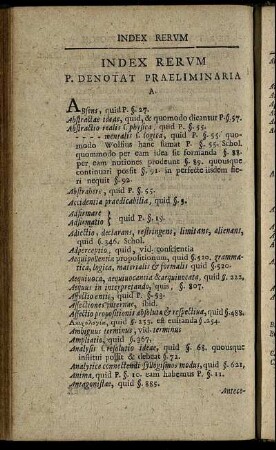 INDEX RERVM
INDEX RERVM
P. DENOTAT PRAELIMINARIA
A.
Absens, quid P. §. 27.
Abstractae ideae, quid, & quomodo dicantur P. §. 57.
Abstractio realis s. physica, quid P. §. 55.
- - - - mentalis s. logica, quid P. §. 55. quo-
modo Wolfius hanc sumat P. §. 55. Schol.
quommodo per eam idea sit formanda §. 88.
per eam notiones prodeunt §. 89. quousque
continuari possit §. 91. in perfecte iisdem fie-
ri nequit §. 92.
Abstrahere, quid P. §. 55.
Accidentia praedicabilia, quid §. 8.
Adfirmare
Adfirmatio } quid P. §. 19.
Adiectio, declarans, restringens, limitans, alienans,
quid §. 346. Schol.
Apperceptio, quid, vid. conscientia
Aequipollentia propositionum, quid §. 520. gramma-
tica, logica, materialis & formalis quid §. 520.
Aequivoca, aequivocantia & aequivocata, quid §. 222.
Aequus in interpretando, quis, §. 807.
Affectio entis, quid P. §. 53.
Affectiones internae, ibid.
Affectio propositionis absoluta & respectiua, quid §. 488.
quid §. 253. est euitanda §. 254.
Ambiguus terminus, vid. terminus
Ampliatio, quid §. 367.
Analysis s. resolutio ideae, quid §. 68. quousque
institui possit & debeat §. 72.
Analytice connectendi syllogismos modus, quid §. 621.
Anima, quid P. §. 10. eam habemus P. §. 11.
Antagonistae, quid §. 885.
Antece-